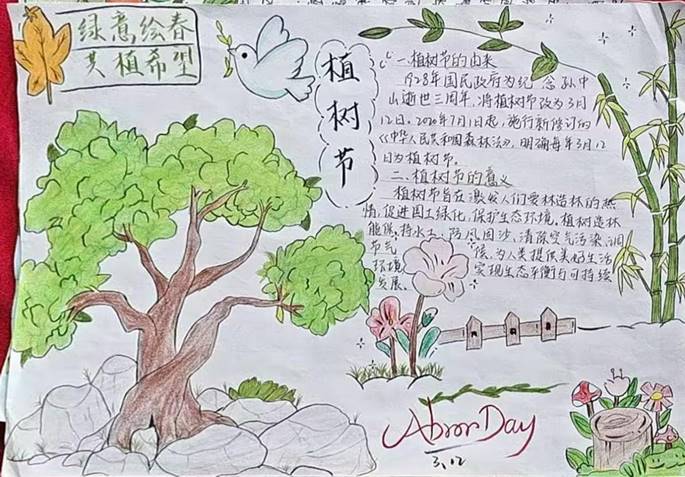 绿意绘春
共植希望
植树节
一 植树节的由来
1928年国民政府为纪念孙中
山逝世三周年,将植树节改为3月
12日。2020年7月1日起,施行新修订的
《中华人民共和国森林法》,明确每年3月12
日为植树节。
二、植树节的意义
植树节旨在激发人们爱林造林的热
情,促进国土绿化,保护生态环境,植树造林
能保持水土,防风固沙,清除空气污染,调
节气候,为人类提供美好生活
环境,实现生态平衡与可持续
发展。
Abror Day
3.12